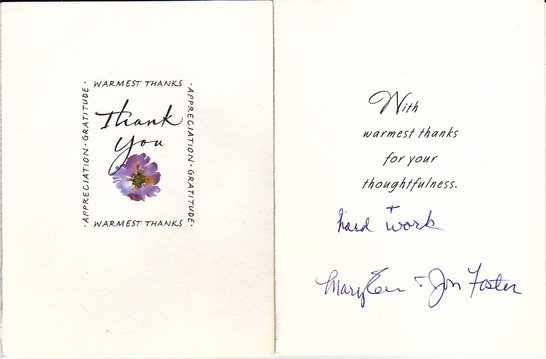 WARMEST THANKS
APPRECIATION · GRATITUDE
APPRECIATION · GRATITUDE
Thank
You
WARMEST THANKS
With
warmest thanks
for your
thoughtfulness.
+
hard work
& Jon Foster